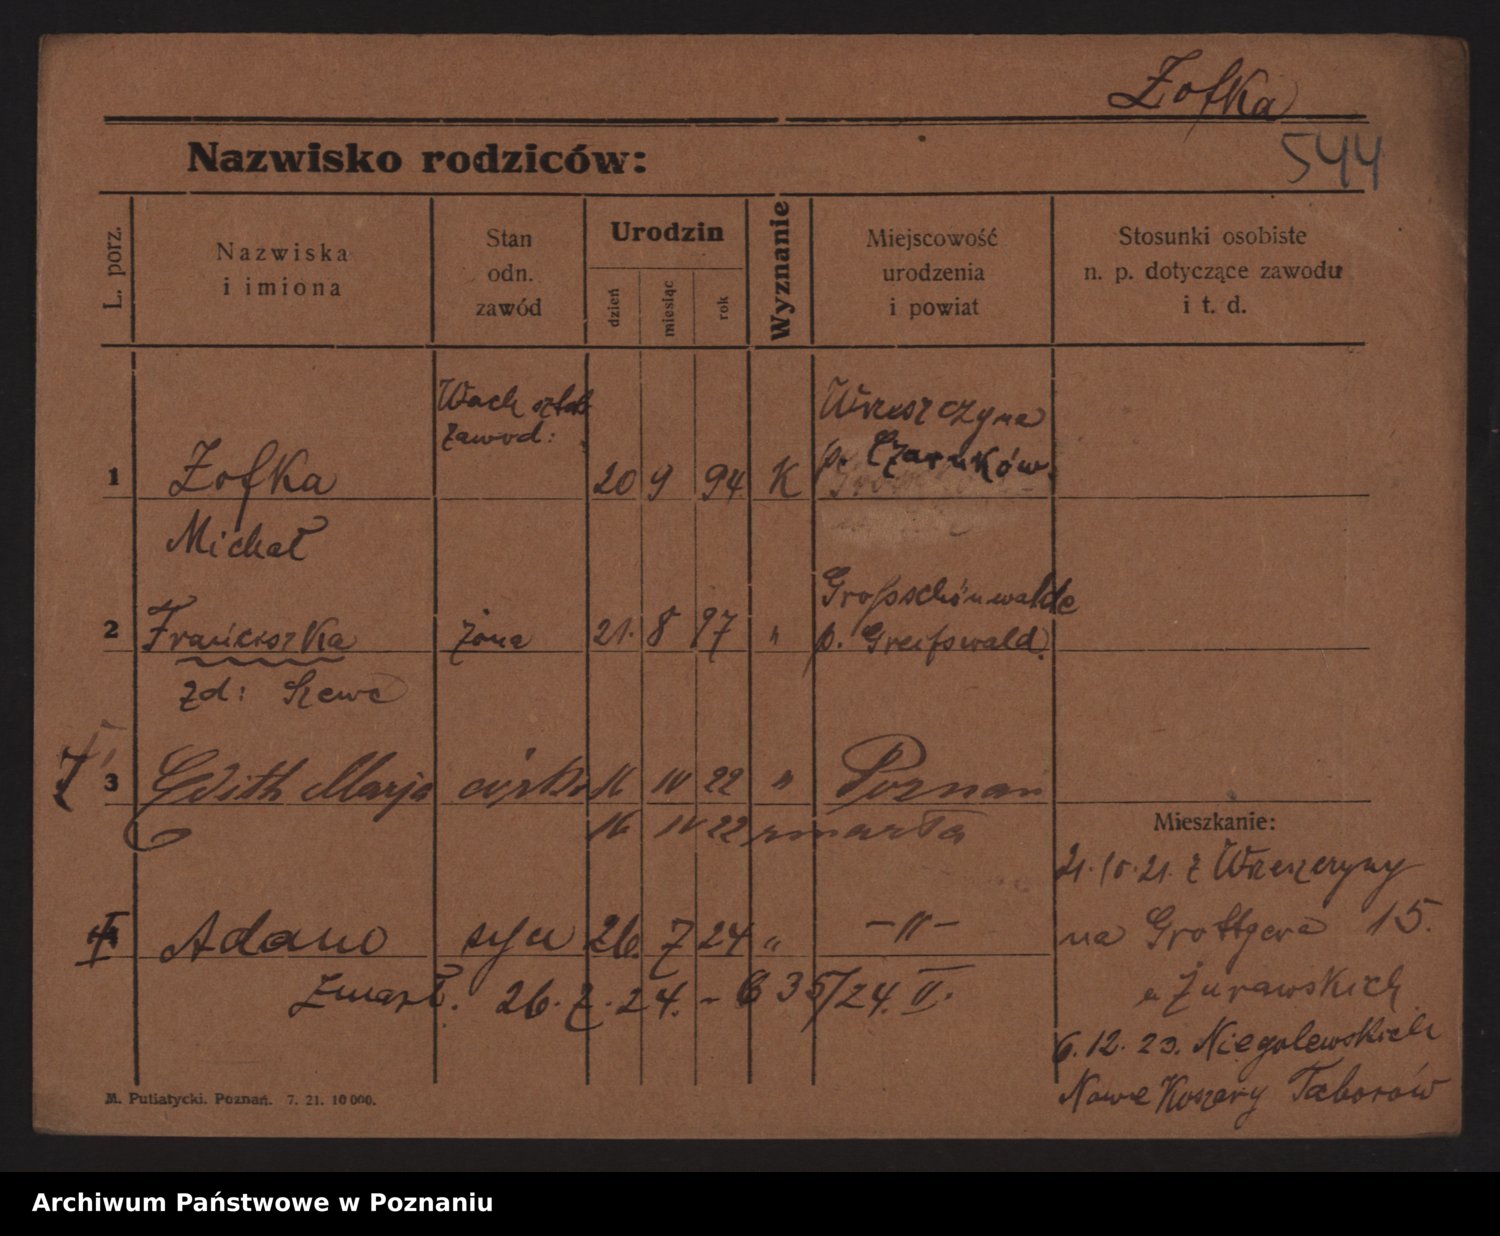 Zofka
544
Nazwisko rodziców:
L. porz.
Nazwiska
i imiona
Stan
odn.
zawód
Urodzin
dzień
miesiąc
rok
Wyznanie
Miejscowość
urodzenia
i powiat
Stosunki osobiste
n. p. dotyczące zawodu
i t. d.
Wach
zawod:
Wrzeszczyna
p. Czarnków.
1 Zofka 20 9 94 K
Michał
Grofsschönwalde
2 Franciszka żona 21. 8 97 " p. Greifswald.
zd: Szewc
3 Edith Marja córka 16 IV 22 " Poznan
16 IV 22 zmarła
Mieszkanie:
21. 10. 21. z Wrzeszczyny
Adam syn 26. 7 24 " -"-
na Grottgera 15.
Zmarł. 26. 7. 24. - 635/24. II.
u Żurawskich
6. 12. 23. Niegolewskich
Nowe Koszary Taborów
M. Putiatycki. Poznań. 7. 21. 10 000.
Archiwum Państwowe w Poznaniu